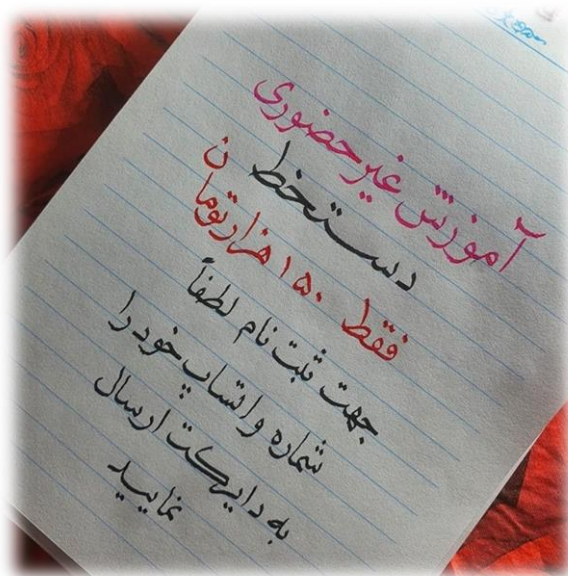 آموزش غیرحضوری
دستخط
فقط ۱۵۰ هزارتومان
جهت ثبت نام لطفاً
شماره واتساپ خود را
به دایرکت ارسال
نمایید